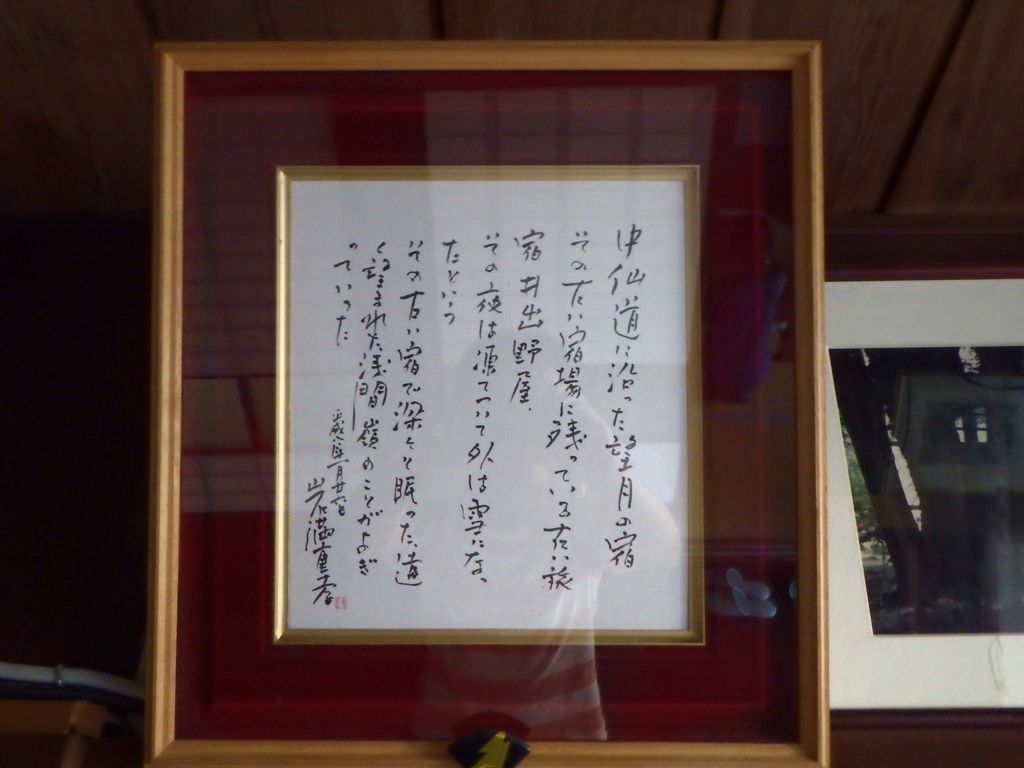 中仙道に沿った望月の宿
その古い宿場に残っている古い旅
宿 井出野屋、
その夜は凍てついて外は雪になっ
たという
その古い宿で深々と眠った道
く踏まれた浅間嶺のことがよぎ
っていった
岩満重孝